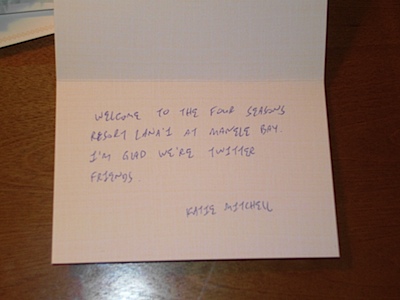 WELCOME TO THE FOUR SEASONS
RESORT LANA'I AT MANELE BAY.
I'M GLAD WE'RE TWITTER
FRIENDS.
KATIE MITCHELL